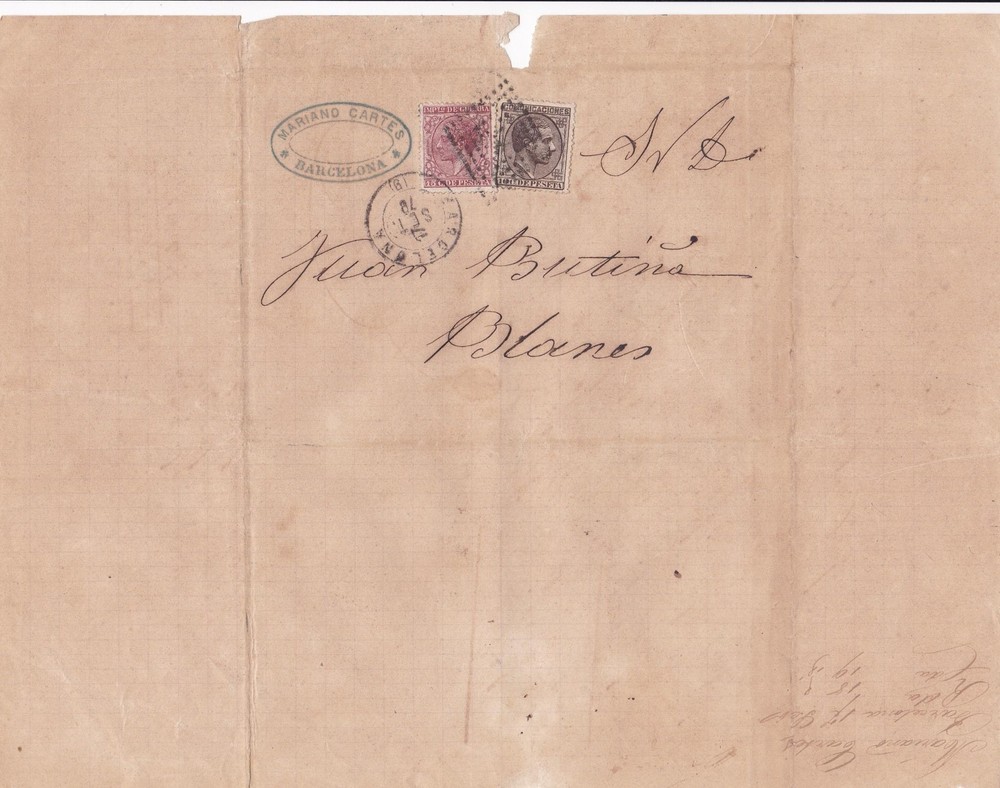 MARIANO CARTES
BARCELONA
IMPto DE GUERRA
15 C. DE PESETA
COMUNICACIONES
10 C. DE PESETA
Sr D
BARCELONA
(6)
SET.
78
Juan Butiñá
Blanes
Mariano Cartes
Barcelona 17
Rda